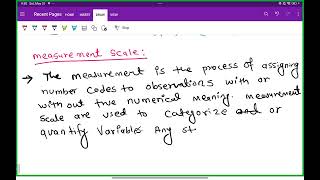 Recent Pages
HOME
INSERT
DRAW
VIEW
measurement scale:
→ The measurement is the process of assigning
number codes to observations with or
without true numerical meaning. measurement
scale are used to categorize or
quantify variables Any st